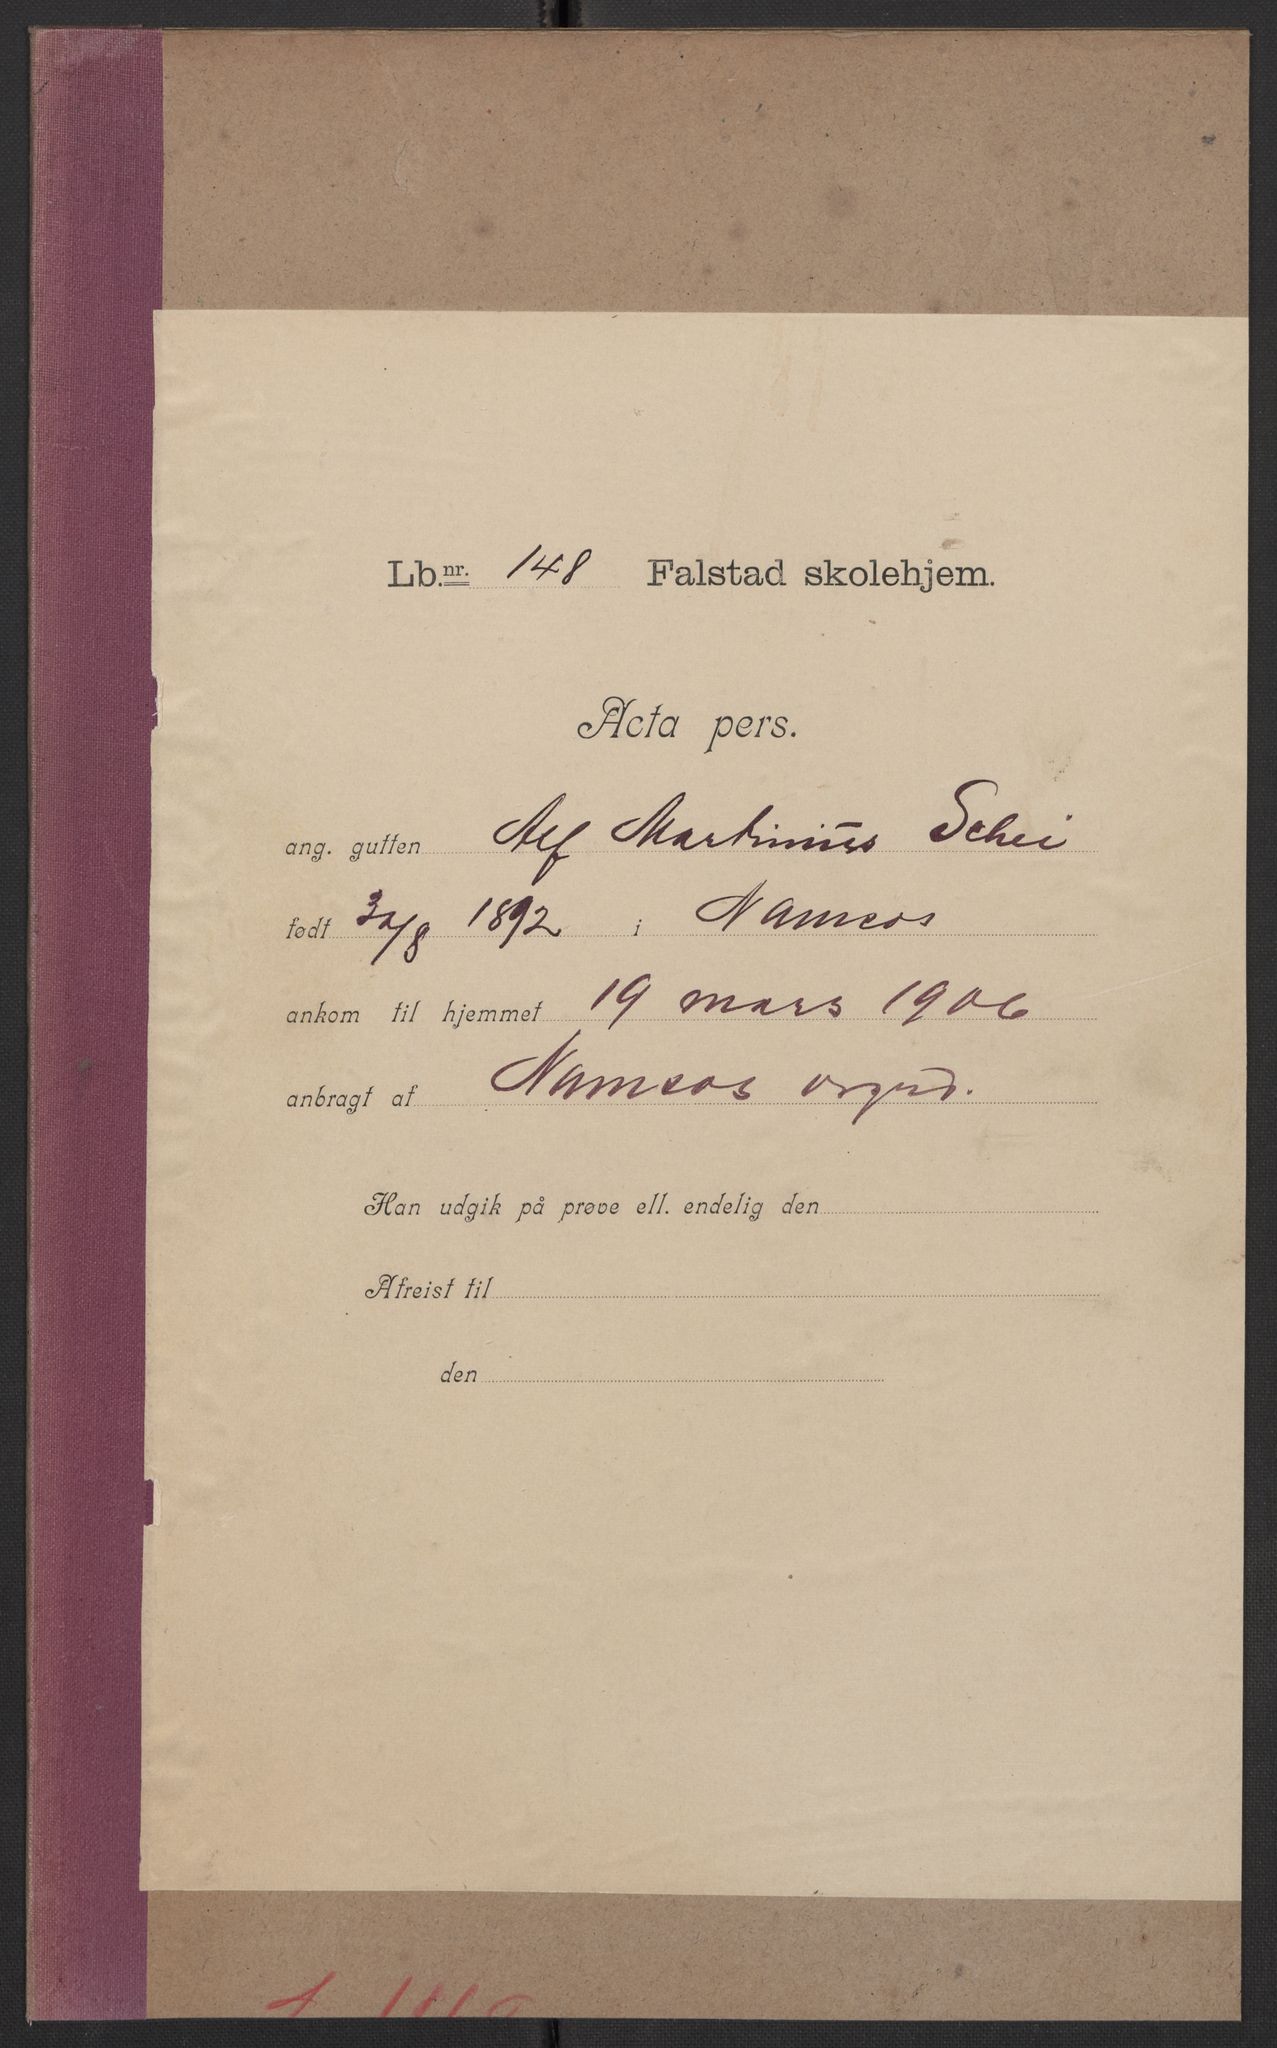 Lb.nr. 148 Falstad skolehjem.
Acta pers.
ang. gutten Alf Martinius Schei
født 30/8 1892 i Namsos
ankom til hjemmet 19 mars 1906
anbragt af Namsos vrgrd.
Han udgik på prøve ell. endelig den
Afreist til
den